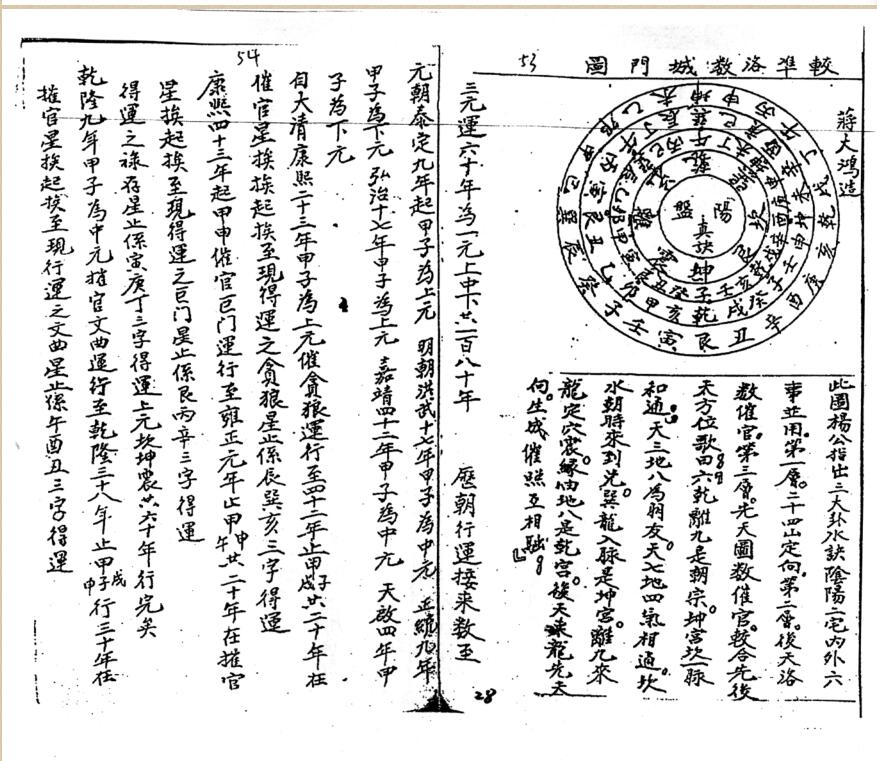 較準洛数城門圖
53
蔣大鴻造
陽盤真訣
此圖楊公指出三大卦水訣陰陽二宅內外六
事並用。第一層。二十四山定向。第二層。後天洛
数催官。第三層。先天圖数催官。較合先後
天方位歌曰六乾離九是朝宗。坤宮坎一脉
和通。天三地八為朋友。天七地四氣相通。坎
水朝時來到兌。巽龍入脉是坤宮。離九來
龍定穴震緣由地八是乾宮。後天來龍先天
向。生成催照互相融。
三元運六十年為一元上中下共一百八十年 歷朝行運接来数至
28
54
元朝泰定九年起甲子為上元 明朝洪武十七年甲子為中元 正統九年
甲子為下元 弘治十七年甲子為上元 嘉靖四十二年甲子為中元 天啟四年甲
子為下元
自大清康熙二十三年甲子為上元催貪狼運行至四十二年止甲子戍共二十年在
催官星挨挨起挨至現得運之貪狼星止係辰巽亥三字得運
康熙四十三年起甲申催官巨门運行至雍正元年止甲申午共二十年在摧官
星挨起挨至現得運之巨门星止係艮丙辛三字得運
得運之祿存星止係寅庚丁三字得運上元坎坤震共六十年行完矣
乾隆九年甲子為中元摧官文曲運行至乾隆三十八年止甲子戍申行三十年在
摧官星挨起挨至現行運之文曲星止係午酉丑三字得運